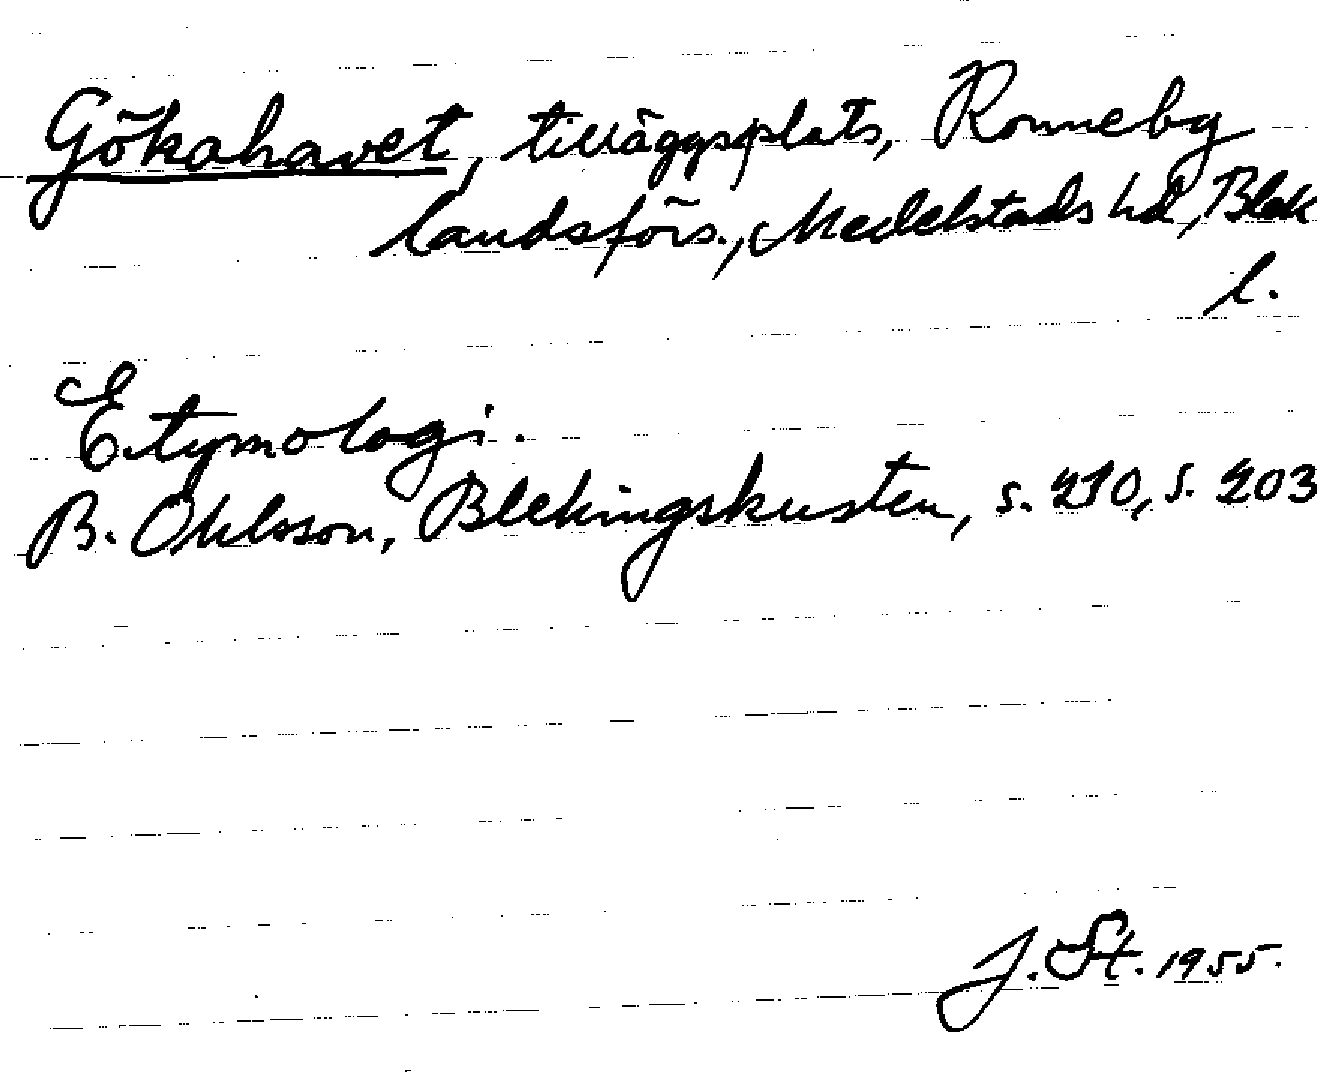 Gökahavet, tilläggsplats, Ronneby
landsförs., Medelstads hd, Blek
l.
Etymologi.
B. Ohlsson, Blekingskusten, s. 210, s. 203
J. St. 1955.